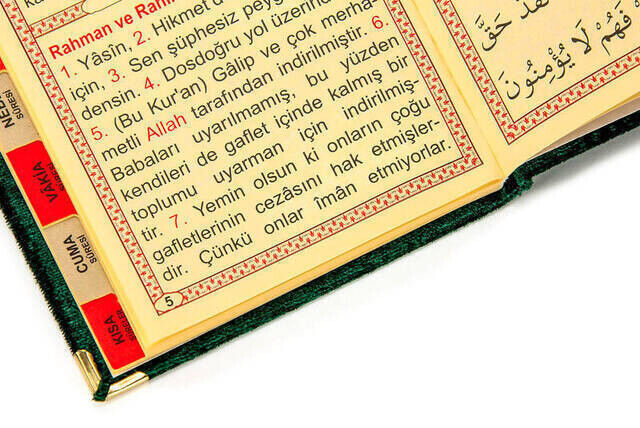 Rahman ve Rahîm
1. Yâsîn, 2. Hikmet d
için, 3. Sen şüphesiz peyg
densin. 4. Dosdoğru yol üzerind
5. (Bu Kur'an) Gâlip ve çok merha-
metli Allah tarafından indirilmiştir. 6.
Babaları uyarılmamış, bu yüzden
kendileri de gaflet içinde kalmış bir
toplumu uyarman için indirilmiş-
tir. 7. Yemin olsun ki onların çoğu
gafletlerinin cezâsını hak etmişler-
dir. Çünkü onlar îmân etmiyorlar.
5
SÛRESİ
VÂKIA
SÛRESİ
CUMA
SÛRESİ
KISA
SÛRELER
حَقَّ
فَهُمْ لَا يُؤْمِنُونَ